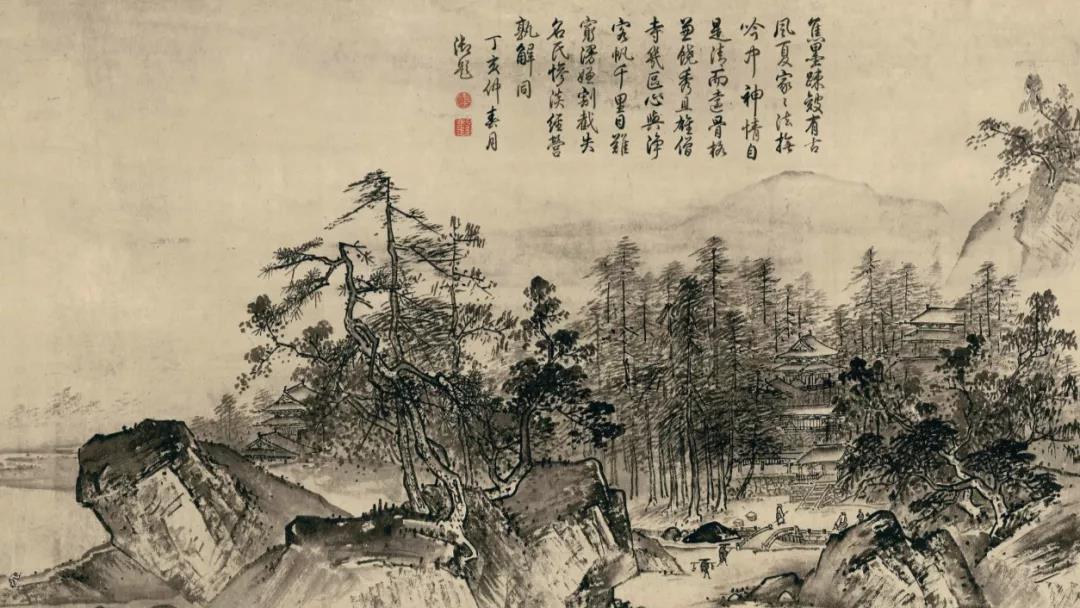 焦墨踈皴有古
風夏家〻法
中神情自
是清而遠骨格
兼饒秀且雄僧
寺幾區心與淨
客帆千里目難
窮漫嫌割截失
名氏慘淡經營
孰解同
丁亥仲春月
御題